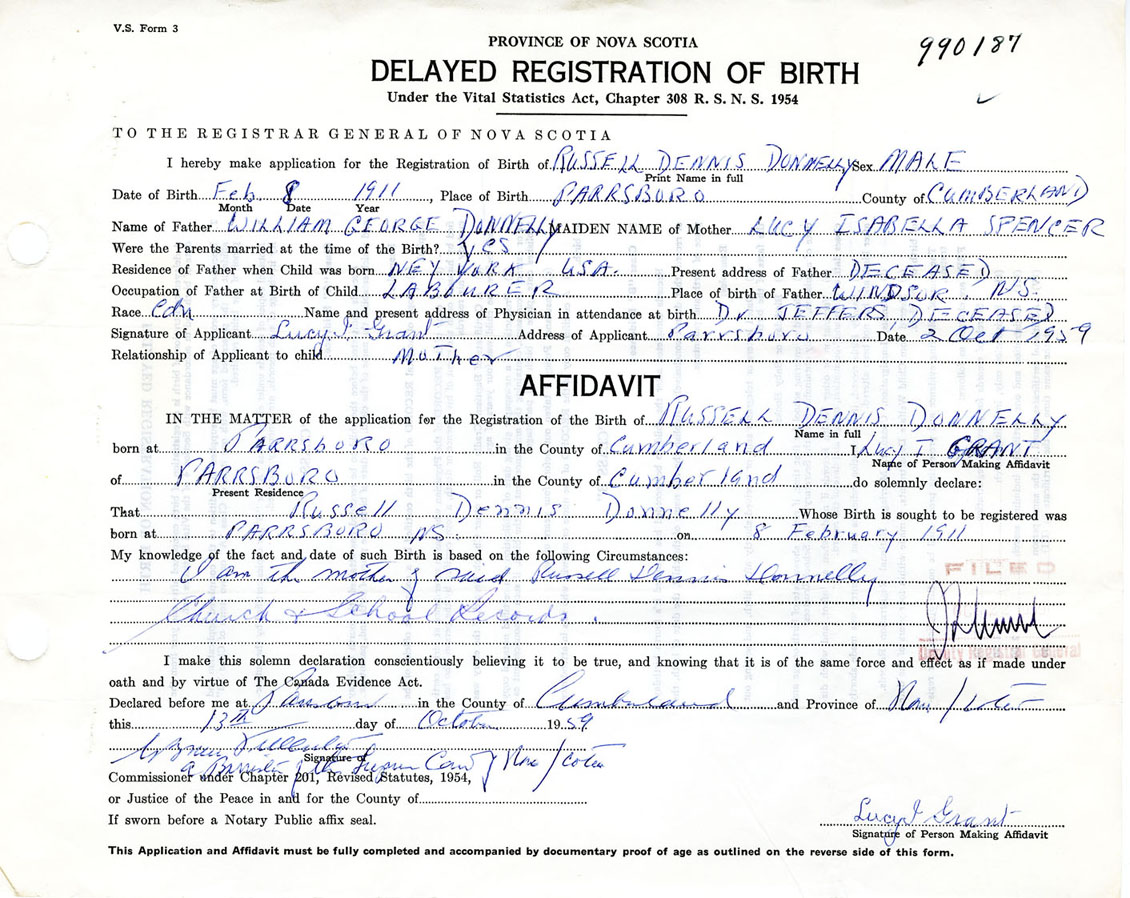 V.S. Form 3
990187
PROVINCE OF NOVA SCOTIA
DELAYED REGISTRATION OF BIRTH
Under the Vital Statistics Act, Chapter 308 R. S. N. S. 1954
TO THE REGISTRAR GENERAL OF NOVA SCOTIA
I hereby make application for the Registration of Birth of RUSSELL DENNIS DONNELLY Sex MALE
Print Name in full
Date of Birth Feb 8 1911, Place of Birth PARRSBORO County of CUMBERLAND
Month Date Year
Name of Father WILLIAM GEORGE DONNELLY MAIDEN NAME of Mother LUCY ISABELLA SPENCER
Were the Parents married at the time of the Birth? YES
Residence of Father when Child was born NEY YORK USA. Present address of Father DECEASED
Occupation of Father at Birth of Child LABOURER Place of birth of Father WINDSOR, NS.
Race Cdn Name and present address of Physician in attendance at birth Dr JEFFERS, DECEASED
Signature of Applicant Lucy I Grant Address of Applicant Parrsboro Date 2 Oct 1959
Relationship of Applicant to child Mother
AFFIDAVIT
IN THE MATTER of the application for the Registration of the Birth of RUSSELL DENNIS DONNELLY
Name in full
born at PARRSBORO in the County of Cumberland I Lucy I GRANT
Name of Person Making Affidavit
of PARRSBORO in the County of Cumberland do solemnly declare:
Present Residence
That Russell Dennis Donnelly Whose Birth is sought to be registered was
born at PARRSBORO NS. on 8 February 1911
My knowledge of the fact and date of such Birth is based on the following Circumstances:
I am the mother of said Russell Dennis Donnelly
FILED
Church & School Records.
Deputy Registrar General
I make this solemn declaration conscientiously believing it to be true, and knowing that it is of the same force and effect as if made under
oath and by virtue of The Canada Evidence Act.
Declared before me at Parrsboro in the County of Cumberland and Province of Nova Scotia
this 13th day of October 1959
Signature of
a Barrister of the Supreme Court of Nova Scotia
Commissioner under Chapter 201, Revised Statutes, 1954,
or Justice of the Peace in and for the County of
If sworn before a Notary Public affix seal.
Lucy I Grant
Signature of Person Making Affidavit
This Application and Affidavit must be fully completed and accompanied by documentary proof of age as outlined on the reverse side of this form.